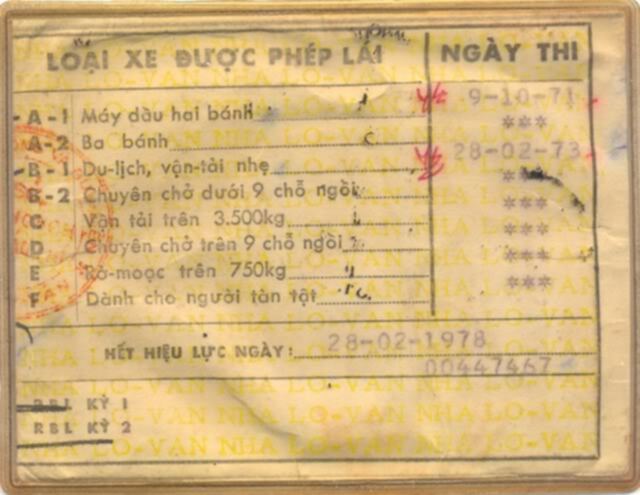 LOẠI XE ĐƯỢC PHÉP LÁI NGÀY THI
A-1 Máy dầu hai bánh 9-10-71
A-2 Ba bánh ***
B-1 Du-lịch, vận-tải nhẹ 28-02-73
B-2 Chuyên chở dưới 9 chỗ ngồi ***
C Vận tải trên 3.500kg ***
D Chuyên chở trên 9 chỗ ngồi ***
E Rờ-moọc trên 750kg ***
F Dành cho người tàn tật ***
HẾT HIỆU LỰC NGÀY: 28-02-1978
00447467
RBL KỲ 1
RBL KỲ 2
NHA LO-VAN NHA LO-VAN NHA LO-VAN